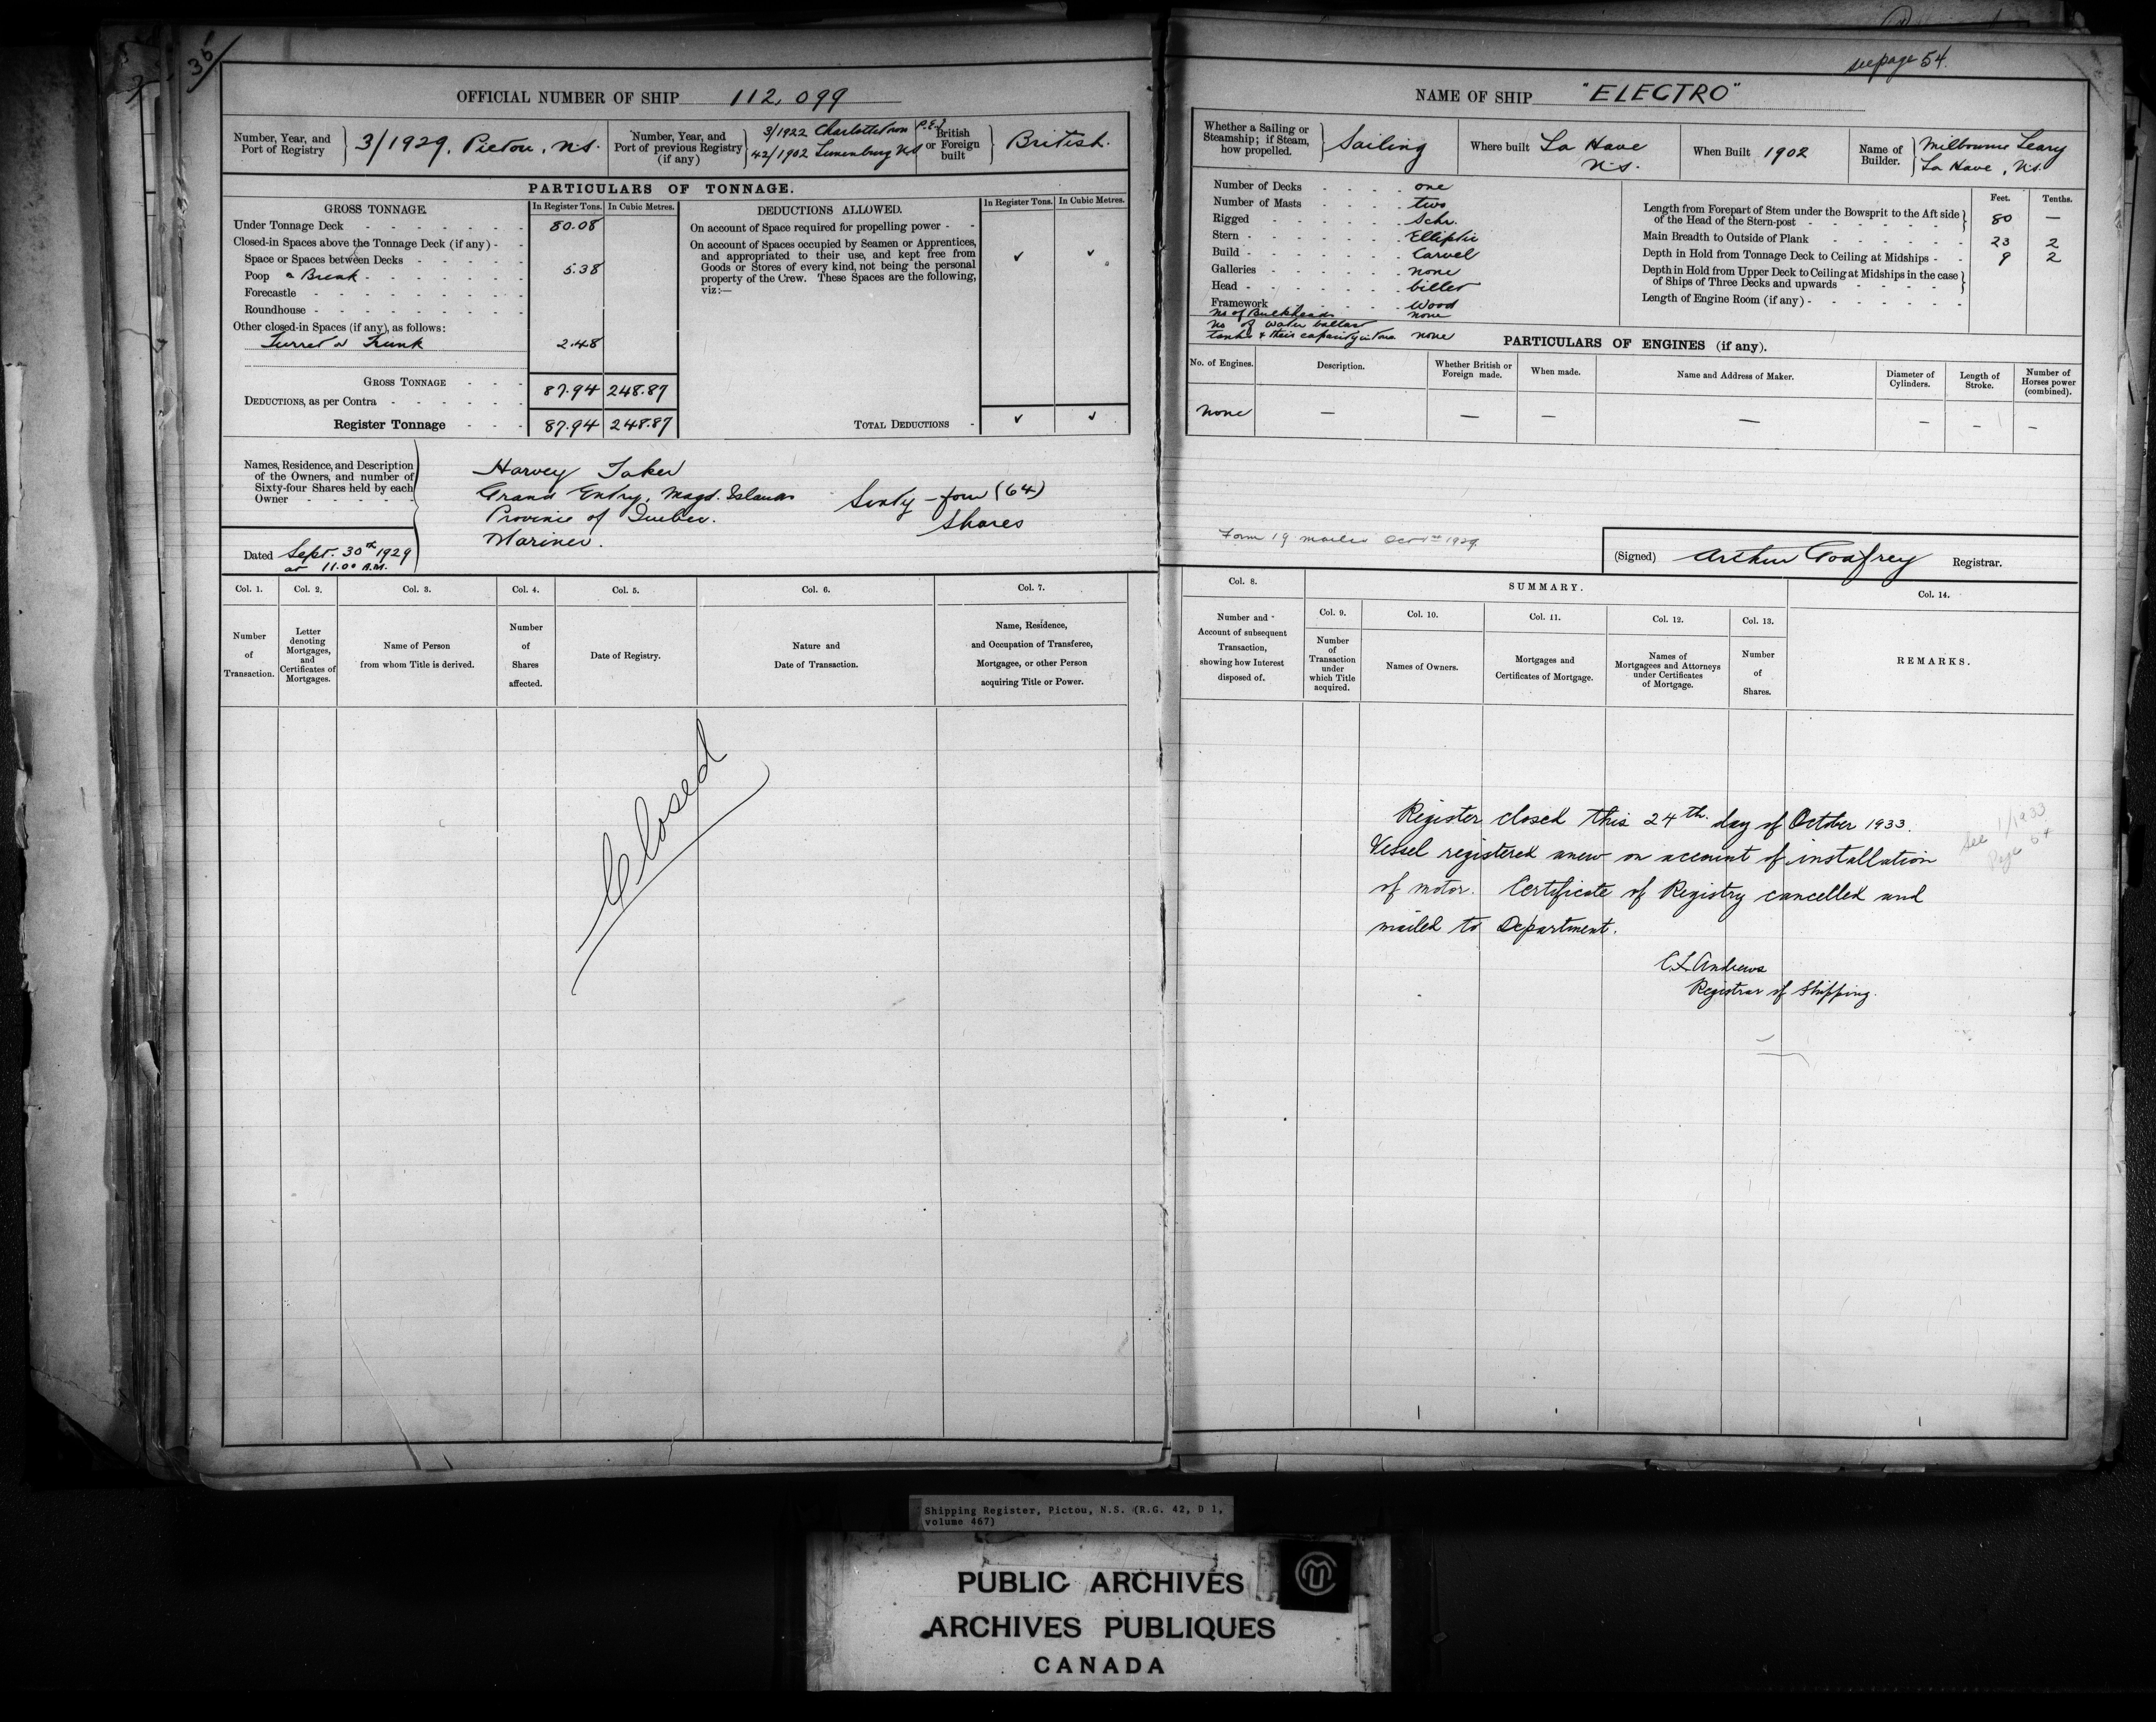 35
see page 54.
OFFICIAL NUMBER OF SHIP 112,099
NAME OF SHIP "ELECTRO"
Number, Year, and Port of Registry } 3/1929, Pictou, N.S.
Number, Year, and Port of previous Registry (if any) } 3/1922 Charlottetown P.E.I
42/1902 Lunenburg N.S
British or Foreign built } British.
PARTICULARS OF TONNAGE.
GROSS TONNAGE. In Register Tons. In Cubic Metres.
Under Tonnage Deck 80.08
Closed-in Spaces above the Tonnage Deck (if any)
Space or Spaces between Decks
Poop or Break 5.38
Forecastle
Roundhouse
Other closed-in Spaces (if any), as follows:
Turret or Trunk 2.48
GROSS TONNAGE 87.94 248.87
DEDUCTIONS, as per Contra
Register Tonnage 87.94 248.87
DEDUCTIONS ALLOWED. In Register Tons. In Cubic Metres.
On account of Space required for propelling power
On account of Spaces occupied by Seamen or Apprentices,
and appropriated to their use, and kept free from
Goods or Stores of every kind, not being the personal
property of the Crew. These Spaces are the following,
viz:—
TOTAL DEDUCTIONS
Names, Residence, and Description
of the Owners, and number of
Sixty-four Shares held by each
Owner
Harvey Taker
Grand Entry, Magd. Islands
Province of Quebec.
Mariner.
Sixty-four (64)
Shares
Dated Sept. 30th 1929
at 11.00 A.M.
Col. 1. Col. 2. Col. 3. Col. 4. Col. 5. Col. 6. Col. 7.
Number of Transaction.
Letter denoting Mortgages, and Certificates of Mortgages.
Name of Person from whom Title is derived.
Number of Shares affected.
Date of Registry.
Nature and Date of Transaction.
Name, Residence, and Occupation of Transferee, Mortgagee, or other Person acquiring Title or Power.
Closed
Whether a Sailing or Steamship; if Steam, how propelled. } Sailing
Where built La Have N.S.
When Built 1902
Name of Builder. { Milbourne Leary
La Have, N.S.
Number of Decks one
Number of Masts two
Rigged Schr.
Stern Elliptic
Build Carvel
Galleries none
Head billet
Framework Wood
No of Bulkheads none
No of water ballast
tanks & their capacity in tons none
Feet. Tenths.
Length from Forepart of Stem under the Bowsprit to the Aft side
of the Head of the Stern-post 80 —
Main Breadth to Outside of Plank 23 2
Depth in Hold from Tonnage Deck to Ceiling at Midships 9 2
Depth in Hold from Upper Deck to Ceiling at Midships in the case
of Ships of Three Decks and upwards
Length of Engine Room (if any)
PARTICULARS OF ENGINES (if any).
No. of Engines. Description. Whether British or Foreign made. When made. Name and Address of Maker. Diameter of Cylinders. Length of Stroke. Number of Horses power (combined).
none — — — — — — —
Form 19 mailed Oct 1st 1929.
(Signed) Arthur Godfrey Registrar.
Col. 8. SUMMARY. Col. 14.
Col. 9. Col. 10. Col. 11. Col. 12. Col. 13.
Number and Account of subsequent Transaction, showing how Interest disposed of.
Number of Transaction under which Title acquired.
Names of Owners.
Mortgages and Certificates of Mortgage.
Names of Mortgagees and Attorneys under Certificates of Mortgage.
Number of Shares.
REMARKS.
Register closed this 24th. day of October 1933.
Vessel registered anew on account of installation
of motor. Certificate of Registry cancelled and
mailed to Department.
C.L. Andrews
Registrar of Shipping.
See 1/1933
Page 54
Shipping Register, Pictou, N.S. (R.G. 42, D 1,
volume 467)
PUBLIC ARCHIVES
ARCHIVES PUBLIQUES
CANADA